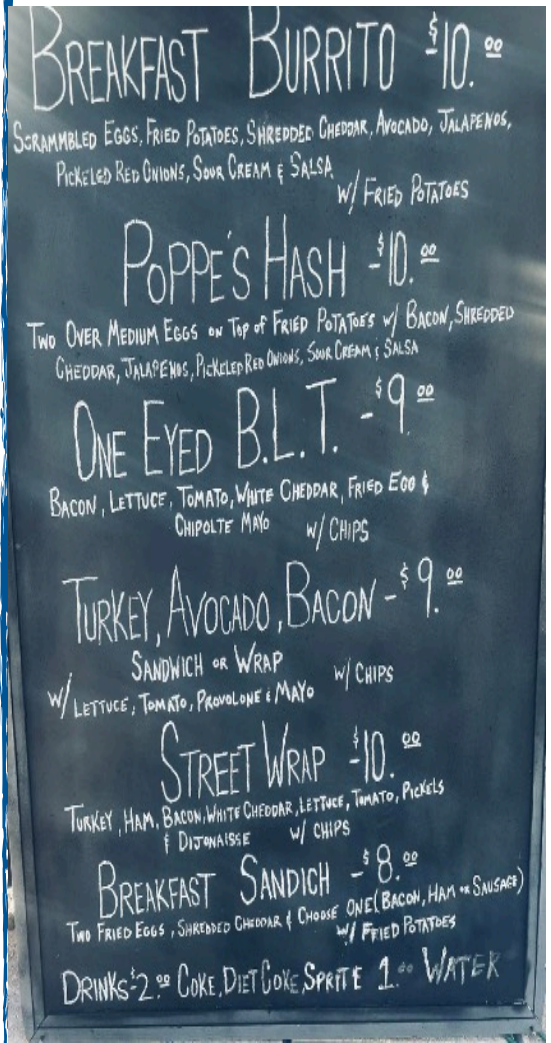 BREAKFAST BURRITO $10.00
SCRAMMBLED EGGS, FRIED POTATOES, SHREDDED CHEDDAR, AVOCADO, JALAPENOS,
PICKELED RED ONIONS, SOUR CREAM & SALSA
W/ FRIED POTATOES
POPPE'S HASH -$10.00
TWO OVER MEDIUM EGGS ON TOP OF FRIED POTATOES W/ BACON, SHREDDED
CHEDDAR, JALAPENOS, PICKELED RED ONIONS, SOUR CREAM & SALSA
ONE EYED B.L.T. -$9.00
BACON, LETTUCE, TOMATO, WHITE CHEDDAR, FRIED EGG &
CHIPOLTE MAYO W/ CHIPS
TURKEY, AVOCADO, BACON -$9.00
SANDWICH OR WRAP W/ CHIPS
W/ LETTUCE, TOMATO, PROVOLONE & MAYO
STREET WRAP -$10.00
TURKEY, HAM, BACON, WHITE CHEDDAR, LETTUCE, TOMATO, PICKELS
& DIJONAISSE W/ CHIPS
BREAKFAST SANDICH -$8.00
TWO FRIED EGGS, SHREDDED CHEDDAR & CHOOSE ONE (BACON, HAM OR SAUSAGE)
W/ FRIED POTATOES
DRINKS -$2.00 COKE, DIET COKE, SPRITE 1.00 WATER